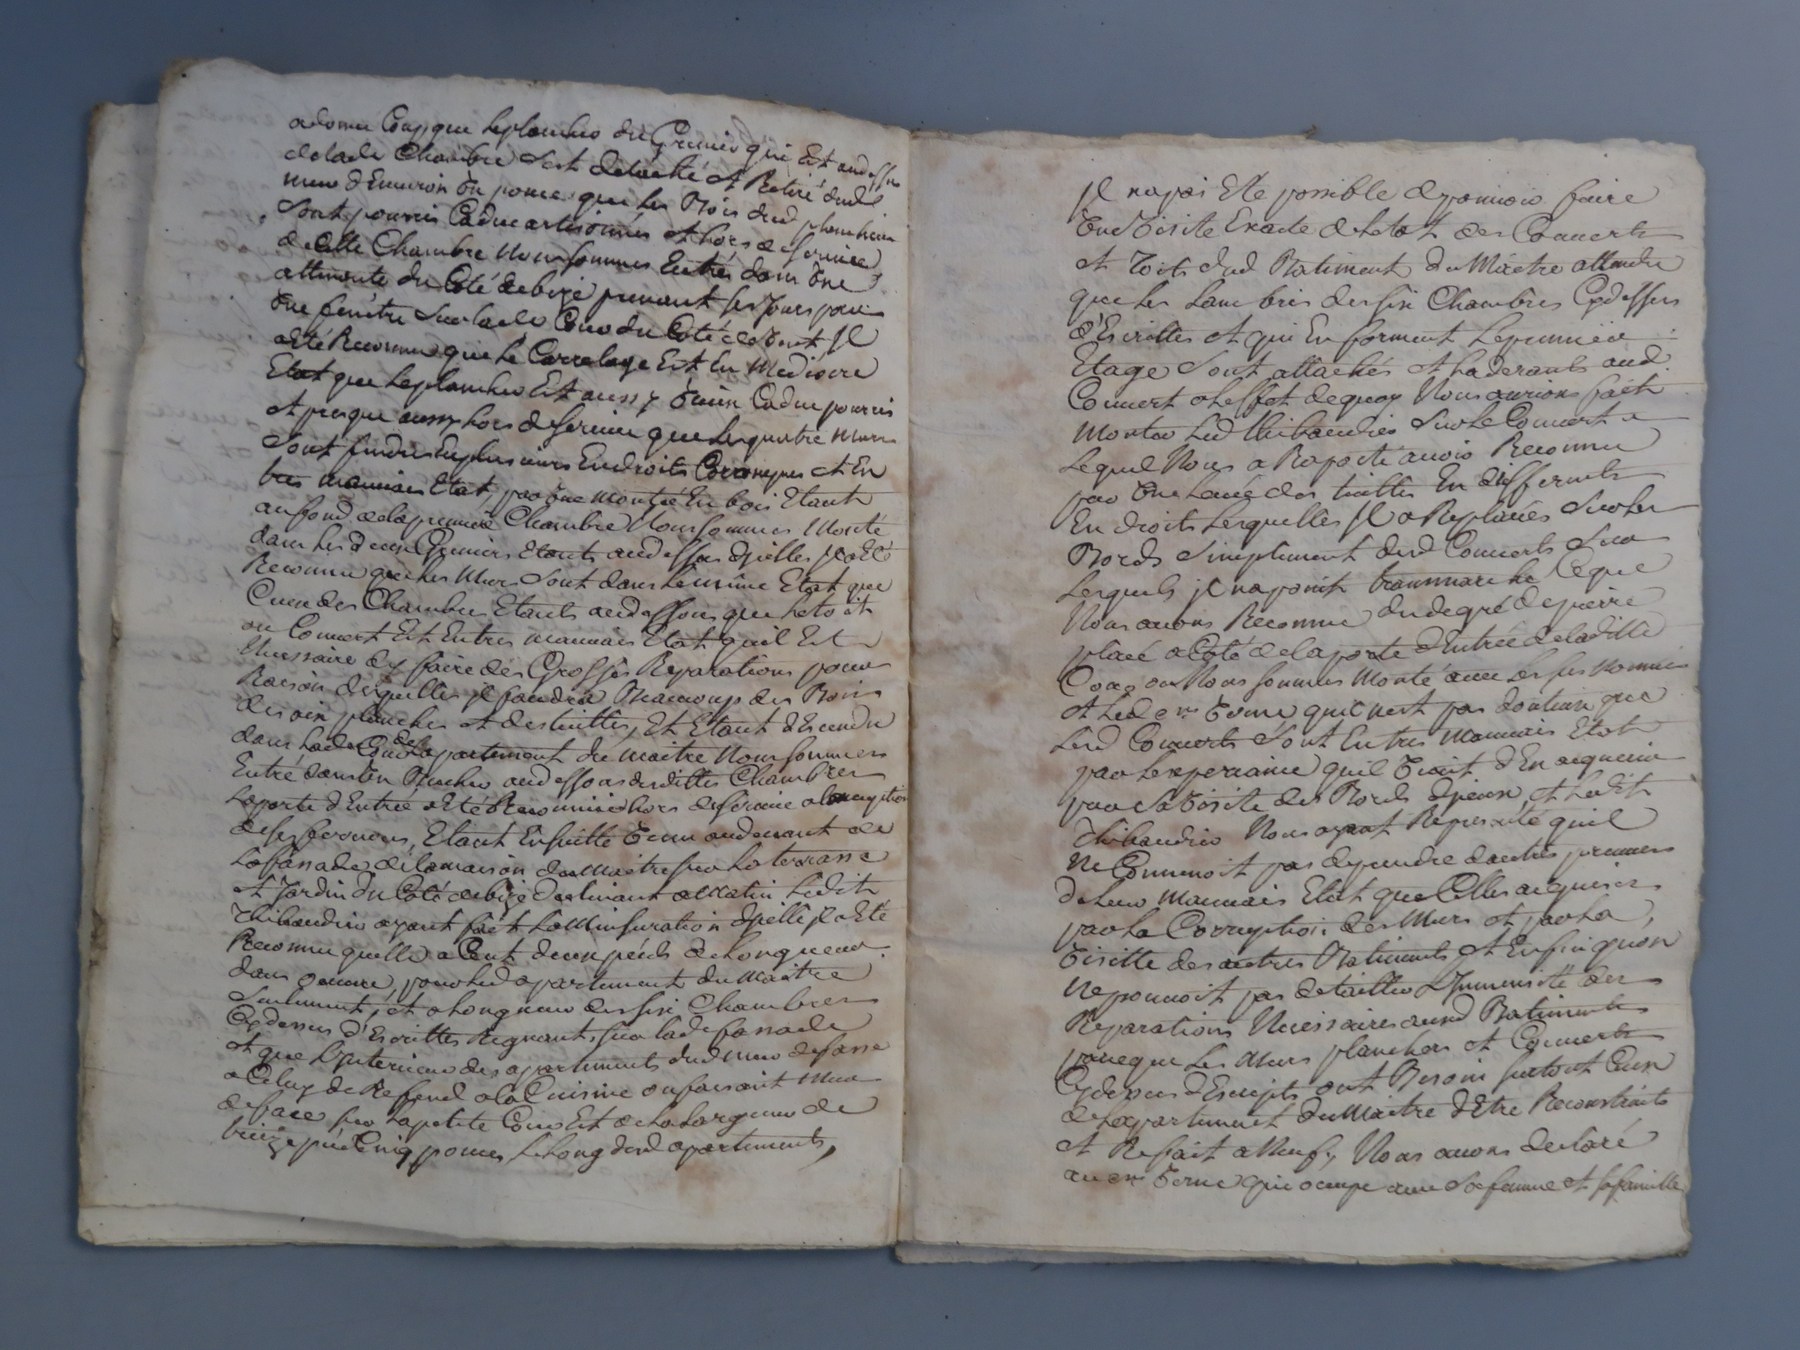 a donné Coup que le plancher du Grenier qui Est au dessus
de lade Chambre s'est détaché et Retiré dud
mur d'Environ un pouce que les Bois dud plancher
sont pourris Caduc artisonnés et hors de service
de cette Chambre Nous sommes Entrés dans une
attenante du Côté de bize prenant ses Jours par
une fenêtre sur lade Cour du Coté de vent Il
a été Reconnu que le Carrelage Est En Médiocre
Etat que le plancher Est aussy Vieux Caduc pourris
et presque aussy hors de service que les quatre Murs
sont fendus En plusieurs Endroits Corrompus et En
tres mauvais Etat, par une montée En bois Etant
au fond de la premiere Chambre Nous sommes Monté
dans les deux Greniers Etants au dessus d'jcelles jl a Eté
Reconnu que les Murs sont dans le même Etat que
Ceux des Chambres Etants au dessous que le toit
ou Couvert Est En tres mauvais Etat quil Est
Necessaire d'y faire des Grosses Reparations pour
Raison desquelles jl faudra Beaucoup des Bois
des ais planches et des tuilles, Et Etant descendu
dans lade Cour de l'apartement du Maitre Nous sommes
Entré dans un Bucher au dessous desdittes Chambres
la porte d'Entrée a Eté Reconnüe hors de service a l'exception
de ses ferrures, Etant Ensuitte Venu au devant de
la fassade de la maison du Maitre sur la terrasse
et Jardin du Coté de bize declinant a Matin Ledit
Thibaudier ayant fait la Minsuration d'jcelle jl a Eté
Reconnu quelle a Cent deux pieds de longueur
dans œuvre, pour led apartement du Maitre
seulement, et a longueur des six Chambres
Cy dessus d'Escrittes Regnant sur lade fassade
et que L'Interieur des apartements dud mur de fasse
a Celuy de Reffend a la Cuisine ou faisant Mur
de face sur la petite Cour Est de la largeur de
treize pieds Cinq pouces le long desd apartements,
Jl na pas Eté possible de pouvoir faire
Une Visite Exacte de letat des Couverts
et Toits dud Batiment du Maitre attendu
que les Lambris des six Chambres Cy dessus
d'Escrittes et qui En forment Le premier
Etage sont attachés et haderants aud.
Couvert a leffet de quoy Nous aurions fait
Monter Led Thibaudier sur le Couvert
Lequel Nous a Raporté avoir Reconnu
par Une levée des tuilles En differents
En droits lesquelles Jl a Replacées sur les
Bords simplement desd Couverts sur
lesquels jl na point tranmarché Ceque
Nous avons Reconnu du degré de pierre
placé a Coté de la porte d'Entrée de laditte
Cour ou Nous sommes Monté avec les sus Nommés
et led sr Verne, quil nest pas douteux que
lesd Couverts sont En tres Mauvais Etat
par lexperiance quil Vient d'En acquerir
par la Visite des Bords d'jceux, et Ledit
Thibaudier Nous ayant Representé quil
Ne Convenoit pas de prendre dautres preuves
de leur Mauvais Etat que Celles acquises
par la Corruption des Murs et par la
Visitte des autres Batiments et Enfin quon
Ne pouvoit pas detailler L'Immensité des
Reparations Necessaires auxd Batiments
parceque les Murs planchers et Couverts
Cy dessus d'Escripts ont Besoin surtout Ceux
de Lapartement du Maitre d'Etre Reconstruits
et Refait a Neuf, Nous avons declaré
au sr Verne qui ocupe avec sa femme et sa famille